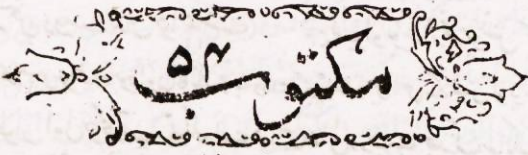 مکتوب ۵۴